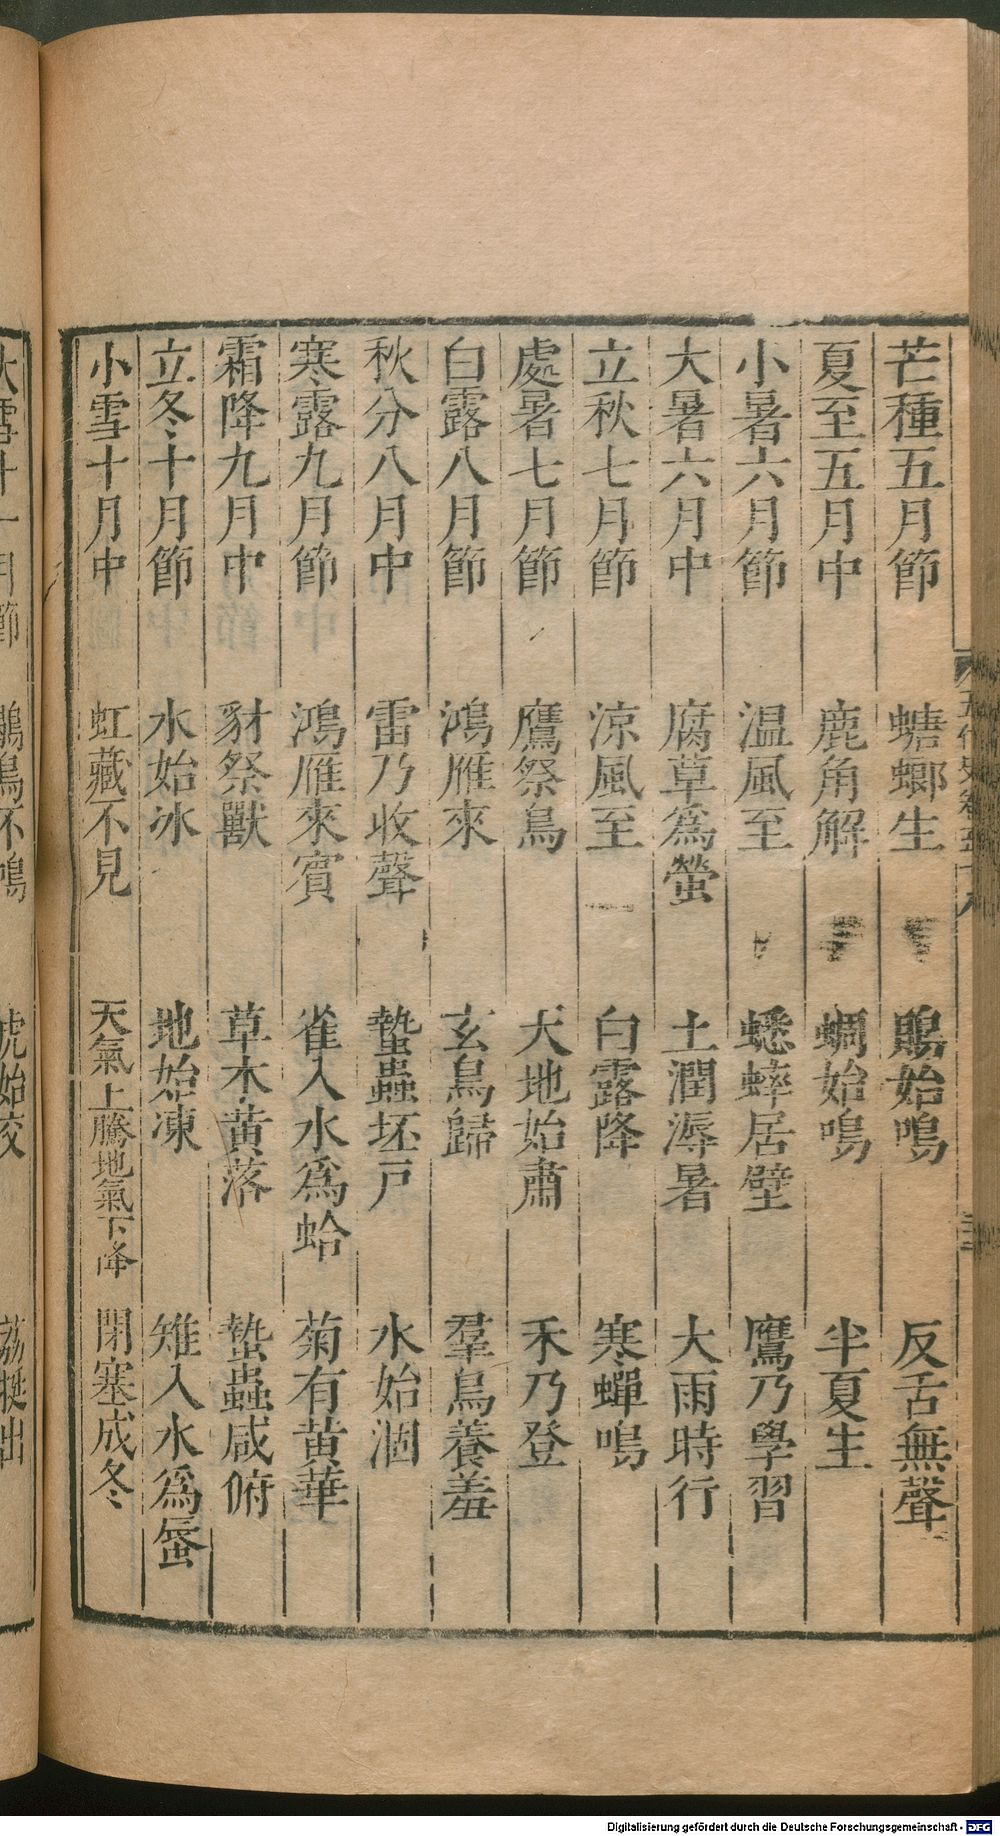 芒種五月節 螗螂生 鵙始鳴 反舌無聲
夏至五月中 鹿角解 蜩始鳴 半夏生
小暑六月節 温風至 蟋蟀居壁 鷹乃學習
大暑六月中 腐草爲螢 土潤溽暑 大雨時行
立秋七月節 涼風至 白露降 寒蟬鳴
處暑七月節 鷹祭鳥 天地始肅 禾乃登
白露八月節 鴻雁來 玄鳥歸 羣鳥養羞
秋分八月中 雷乃收聲 蟄蟲坯戸 水始涸
寒露九月節 鴻雁來賓 雀入水爲蛤 菊有黃華
霜降九月中 豺祭獸 草木黃落 蟄蟲咸俯
立冬十月節 水始冰 地始凍 雉入水爲蜃
小雪十月中 虹藏不見 天氣上騰地氣下降 閉塞成冬
Digitalisierung gefördert durch die Deutsche Forschungsgemeinschaft - DFG